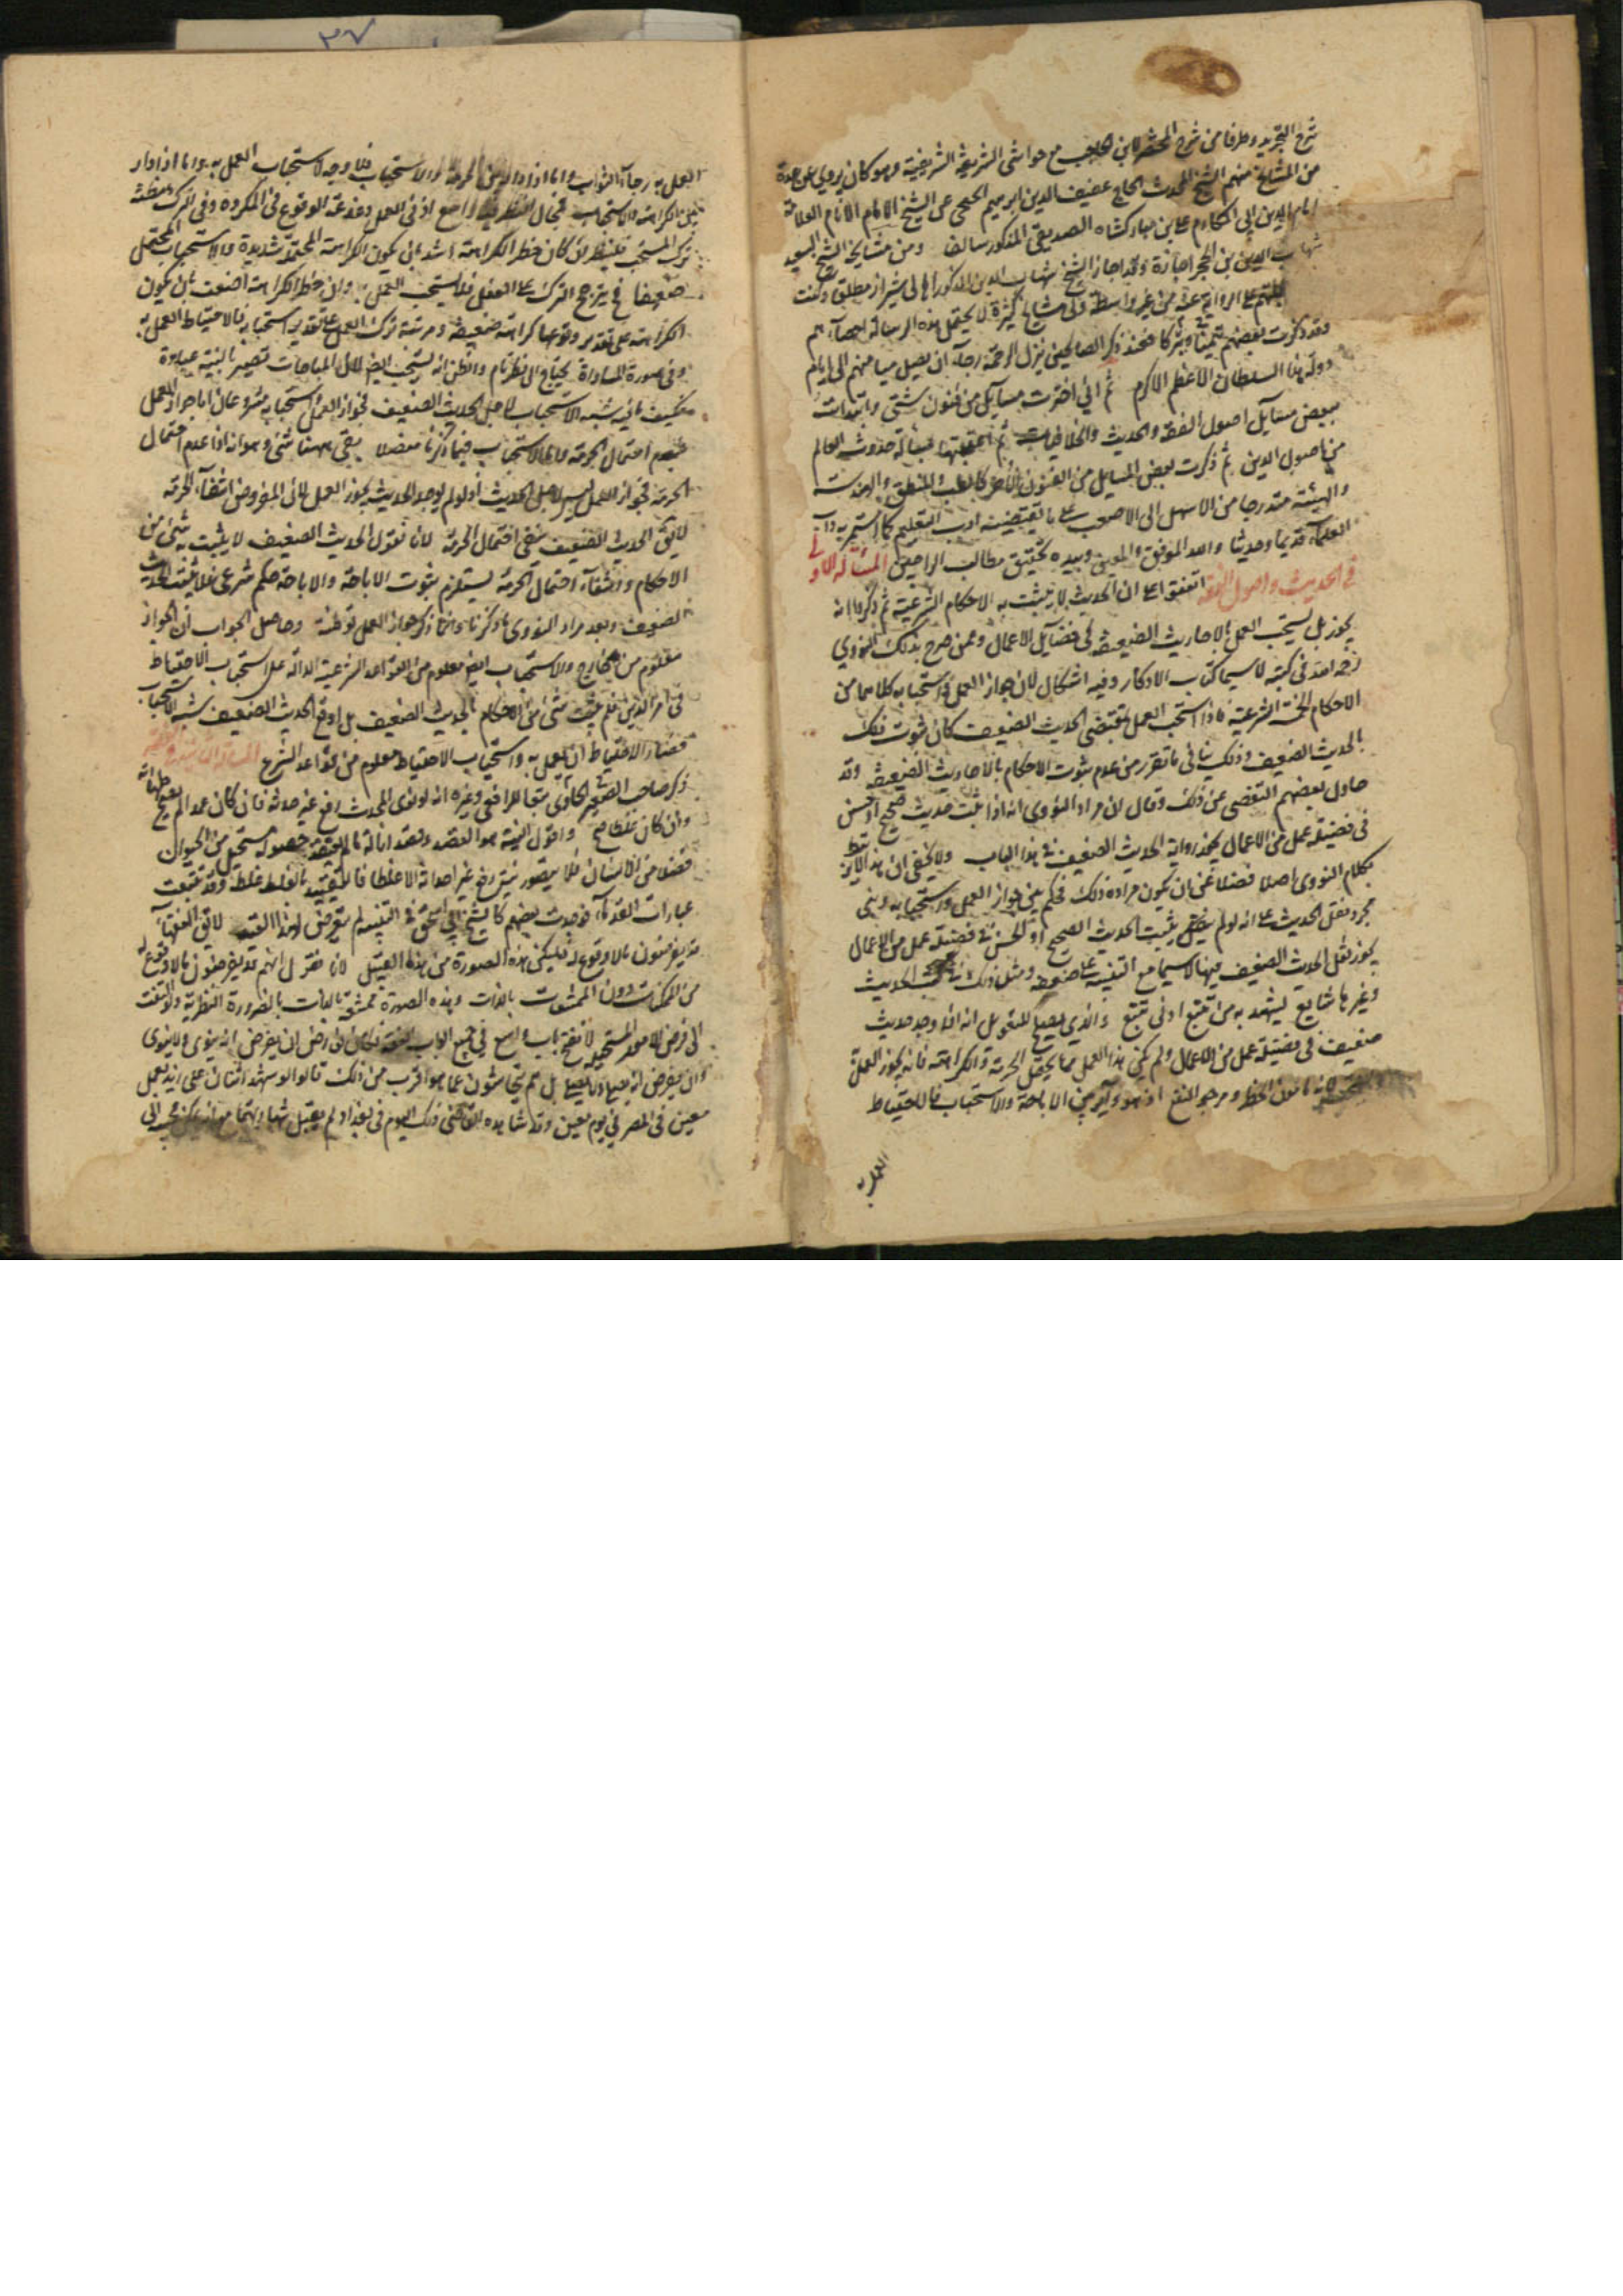 شرح التجريد وطرفا من شرح المختصر لابن حاجب مع حواشي الشريف الشريفية وهو كان يروي عن عدة
من المشايخ منهم الشيخ المحدث الحاج عفيف الدين ابرهيم الخنجي عن الشيخ الامام العلامة
امام الدين ابي المكارم علي بن مباركشاه الصديقي المذكور سالفا ومن مشايخ الشيخ السعيد
شهاب الدين بن الحجر اجازة وقد اجاز الشيخ شهاب الدين المذكور اهالي شيراز مطلقا وكنت
الرواية عنه من غير واسطة ولي مشايخ كثيرة لا يحتمل هذه الرسالة احصاءهم
وقد ذكرت بعضهم تيمنا وتبركا فعند ذكر الصالحين ينزل الرحمة رجاء ان يصل ميامنهم الى ايام
دولة هذا السلطان الاعظم الاكرم ثم اني اخترت مسايل من فنون شتى وابتدات
ببعض مسايل اصول الفقه والحديث والخلافيات ثم اعقبتها بمسألة حدوث العالم
من اصول الدين ثم ذكرت بعض المسايل من الفنون الاخر كالطب والمنطق والهندسة
والهيئة متدرجا من الاسهل الى الاصعب على ما يقتضيه ادب التعليم كما استمر به داب
العلماء قديما وحديثا والله الموفق والمعين وبيده تحقيق مطالب الراجين المسألة الاولى
في الحديث واصول الفقه اتفقوا على ان الحديث لا يثبت به الاحكام الشرعية ثم ذكروا انه
يجوز بل يستحب العمل بالاحاديث الضعيفة في فضايل الاعمال وممن صرح بذلك النووي
رحمه الله في كتبه لا سيما كتاب الاذكار وفيه اشكال لان جواز العمل واستحبابه كلاهما من
الاحكام الخمسة الشرعية فاذا استحب العمل بمقتضى الحديث الضعيف كان ثبوت ذلك
بالحديث الضعيف وذلك ينافي ما تقرر من عدم ثبوت الاحكام بالاحاديث الضعيفة وقد
حاول بعضهم التفصي عن ذلك وقال ان مراد النووي انه اذا ثبت حديث صحيح او حسن
في فضيلة عمل من الاعمال يجوز رواية الحديث الضعيف في هذا الباب ولا يخفى ان هذا لا يرتبط
بكلام النووي اصلا فضلا عن ان يكون مراده ذلك فكم بين جواز العمل واستحبابه وبين
مجرد نقل الحديث على انه لو لم يثبت الحديث الصحيح او الحسن في فضيلة عمل من الاعمال
يجوز نقل الحديث الضعيف فيها لا سيما مع التنبيه على ضعفه ومثل ذلك في كتب الحديث
وغيرها شايع يشهد به من تتبع ادنى تتبع والذي يصلح للتعويل انه اذا وجد حديث
ضعيف في فضيلة عمل من الاعمال ولم يكن هذا العمل مما يحتمل الحرمة والكراهة فانه يجوز العمل به
لانه مامون الخطر ومرجو النفع اذ هو داير بين الاباحة والاستحباب فالاحتياط
العمل به
العمل به رجاء الثواب واما اذا دار بين الحرمة والاستحباب فلا وجه لاستحباب العمل به واما اذا دار
بين الكراهة والاستحباب فمجال النظر فيه واسع اذ في العمل دغدغة الوقوع في المكروه وفي الترك مظنة
ترك المستحب فلينظر ان كان خطر الكراهة اشد بان يكون الكراهة المحتملة شديدة والاستحباب المحتمل
ضعيفا فح يترجح الترك على الفعل فلا يستحب العمل به وان كان خطر الكراهة اضعف بان يكون
الكراهة على تقدير وقوعها كراهة ضعيفة دون مرتبة ترك العمل على تقدير استحبابه فالاحتياط العمل به
وفي صورة المساواة يحتاج الى نظر تام والظن انه يستحب ايضا لان المباحات تصير بالنية عبادة
فكيف ما فيه شبهة الاستحباب لاجل الحديث الضعيف فجواز العمل واستحبابه مشروطان اما جواز العمل
فبعدم احتمال الحرمة واما الاستحباب فبما ذكرنا مفصلا بقي ههنا شئ وهو انه اذا عدم احتمال
الحرمة فجواز العمل ليس لاجل الحديث اذ لو لم يوجد الحديث يجوز العمل لان المفروض انتفاء الحرمة
لا يق الحديث الضعيف ينفي احتمال الحرمة لانا نقول الحديث الضعيف لا يثبت به شئ من
الاحكام وانتفاء احتمال الحرمة يستلزم ثبوت الاباحة والاباحة حكم شرعي فلا يثبت بالحديث
الضعيف ولعل مراد النووي ما ذكرنا وانما ذكر جواز العمل توطئة وحاصل الجواب ان الجواز
معلوم من خارج والاستحباب ايضا معلوم من القواعد الشرعية الدالة على استحباب الاحتياط
في امر الدين فلم يثبت شئ من الاحكام بالحديث الضعيف بل اوقع الحديث الضعيف شبهة الاستحباب
فصار الاحتياط ان يعمل به واستحباب الاحتياط معلوم من قواعد الشرع المسألة الثانية
ذكر صاحب الحاوي الصغير متبعا للرافعي وغيره انه لو نوى المحدث رفع غير حدثه فان كان عمدا لم يصح طهارته
وان كان غلطا صح واقول النية هو القصد وقصد ازالة ما لم يعتقد حصوله مستحيل من الحيوان
فضلا من الانسان فلا يتصور نية رفع غير احداثه الا غلطا فالتقييد بالغلط غلط وقد تتبعت
عبارات القدماء فوجدت بعضهم كالشيخ ابي اسحق في التنبيه لم يتعرض لهذا القيد لا يق الفقهاء
قد يفرضون ما لا وقوع له فليكن هذه الصورة من هذا القبيل لانا نقول انهم قد يفرضون ما لا وقوع له
من الممكنات دون الممتنعات بالذات وهذه الصورة ممتنعة بالذات بالضرورة النظرية ولو التفت
الى فرض الامور المستحيلة لانفتح باب واسع في جميع ابواب الفقه ان يفرض انه ينوي ولا ينوي
وان يفرض انه يصلي ولا يصلي بل هم يتحاشون عما هو اقرب من ذلك قالوا لو شهد اثنان على زيد بعمل
معين في المصر في يوم معين وقد شاهده القاضي ذلك اليوم في بغداد لم يقبل شهادتهما مع انه يمكن